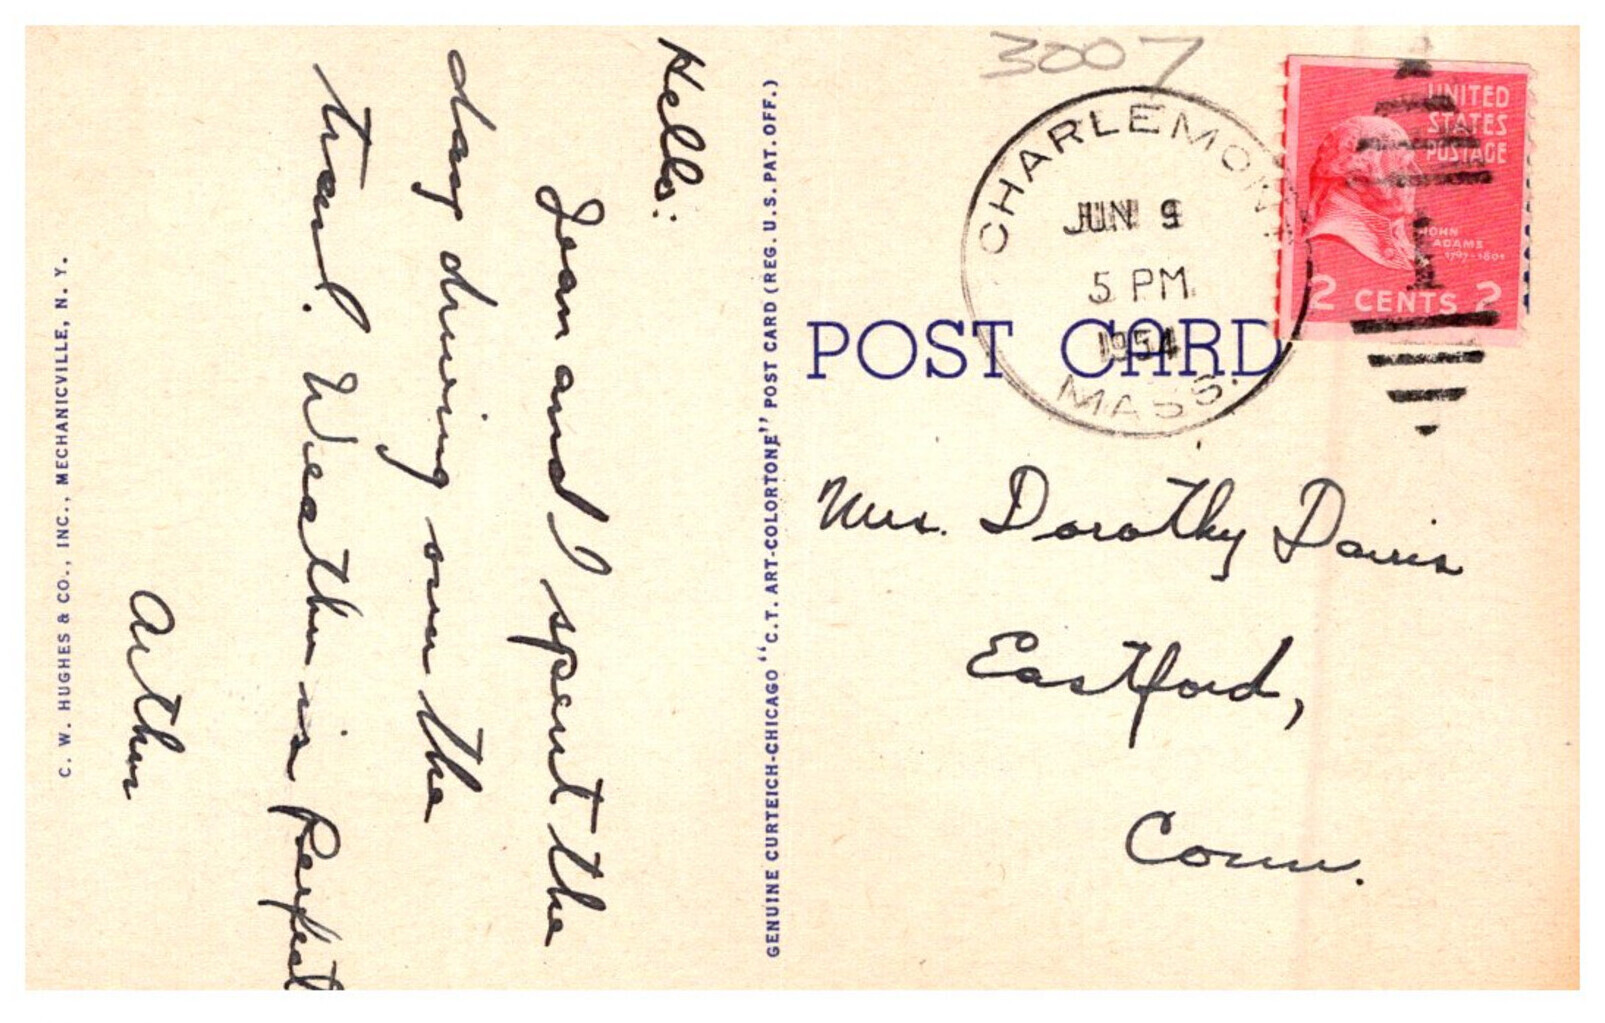 Hello:
Jean and I spent the
day driving over the
trail. Weather is perfect
Arthur
C. W. HUGHES & CO., INC., MECHANICVILLE, N. Y.
GENUINE CURTEICH-CHICAGO "C.T. ART-COLORTONE" POST CARD (REG. U.S. PAT. OFF.)
3007
CHARLEMONT
JUN 9
5 PM
1954
MASS.
UNITED
STATES
POSTAGE
JOHN
ADAMS
1797-1801
2 CENTS 2
POST CARD
Mrs. Dorothy Davis
Eastford,
Conn.